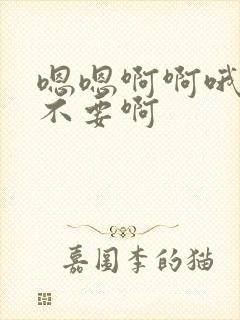 嗯嗯啊啊哦
不要啊
嘉圆李的猫